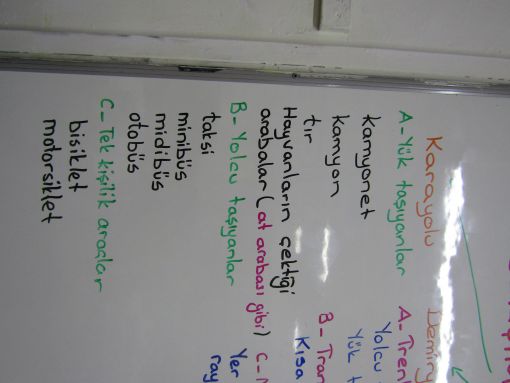 Karayolu
A-Yük taşıyanlar
kamyonet
kamyon
tır
Hayvanların çektiği
arabalar (at arabası gibi)
B-Yolcu taşıyanlar
taksi
minibüs
midibüs
otobüs
C-Tek kişilik araçlar
bisiklet
motorsiklet
Demiry
A-Tren
Yolcu
Yük t
B-Tran
Kısa
C-
Yer
ray